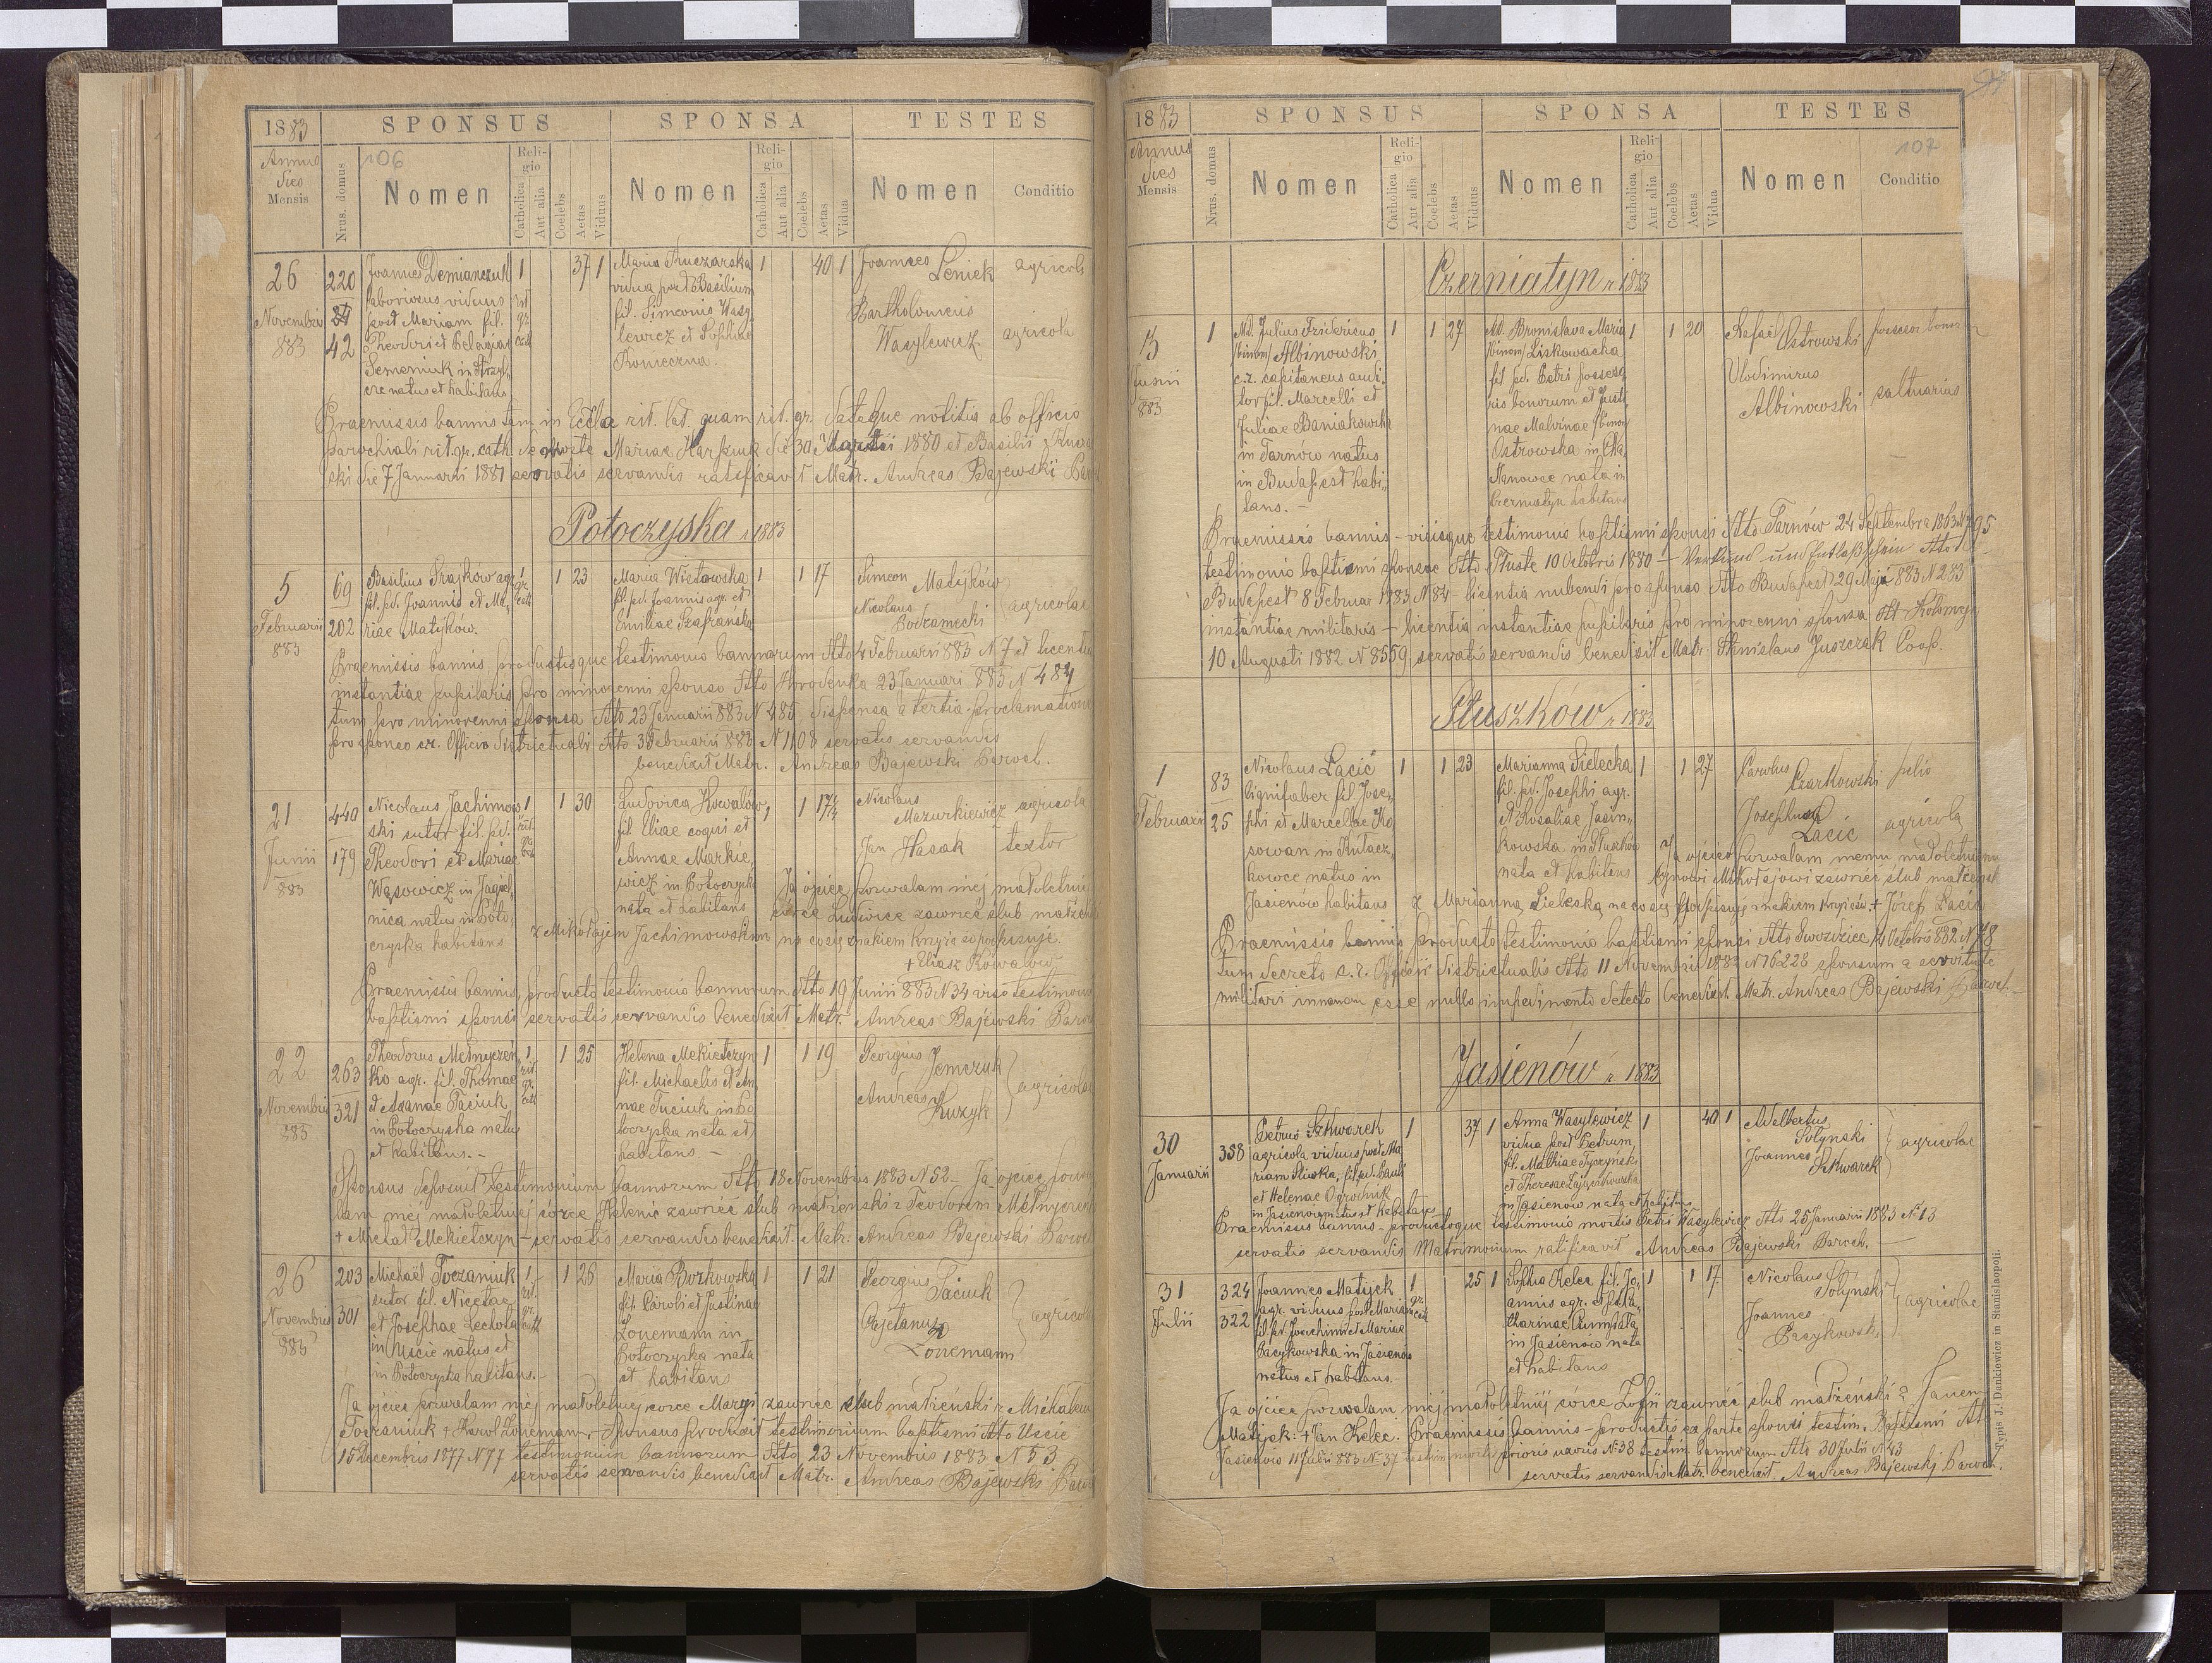 1883
SPONSUS
SPONSA
TESTES
Annus
dies
Mensis
Nrus. domus
106
Nomen
Religio
Catholica
Aut alia
Coelebs
Aetas
Viduus
Nomen
Religio
Catholica
Aut alia
Coelebs
Aetas
Vidua
Nomen
Conditio
26
Novembris
883
220
42
Joannes Demianczuk
laboriosus viduus
post Mariam fil.
Theodori et Pelagiae
Semeniuk in
natus et habitans
1
rit
gr.
cath
37 1
Maria
vidua post Basilium
fil. Simeonis Wasy-
lewicz et Sophiae
Konieczna.
1
40 1
Joannes
Leniek
agricola
Bartholomeus
Wasylewicz
agricola
Praemissis bannis tam in Eccla rit. lat. quam rit. gr. dataque notitia ab officio
parochiali rit. gr. cath. de morte Mariae die 30 1880 et Basilii
ski die 7 Januarii 1881 servatis servandis ratificavit Matr. Andreas Bajewski
Potoczyska r. 1883
5
Februarii
883
69
202
Basilius Prajkow agr.
fil. pd. Joannis et Ma-
riae Matyków.
1
gr.
cath
1 23
Maria Wistowska
fil. pd. Joannis agr. et
Emiliae Szafrańska
1
1 17
Simeon Matyków
Nicolaus
Bodzamecki
agricolae
Praemissis bannis, productisque testimonio bannorum dto 4 Februarii 883 N 7 et licentia
instantiae pupilaris pro minorenni sponso dto Horodenka 23 Januari 883 N 484
tum pro minorenni sponsa dto 23 Januarii 883 N 485 dispensa a tertia proclamatione
pro sponso cr. Officio districtuali dto 3 Februarii 883 N 1108 servatis servandis
benedixit Matr. Andreas Bajewski Paroch.
21
Junii
883
440
179
Nicolaus Jachimow-
ski sutor fil. pd.
Theodori et Mariae
Wąsowicz in Jagiel-
nica natus in Poto-
czyska habitans
1
rit.
gr.
cath
1 30
Ludovica Kowalów
fil. Eliae coqui et
Annae Markie-
wicz in Potoczyska
nata et habitans
1
1 17½
Nicolaus
Mazurkiewicz
agricola
Jan Hasak
textor
Ja ojciec pozwalam mej małoletniej
córce Ludwice zawrzeć ślub małżeń
z Mikołajem Jachimowskim na co się znakiem krzyża podpisuję.
+ Eliasz Kowalów
Praemissis bannis, producto testimonio bannorum dto 19 Junii 883 N 34 viso testimonio
baptismi sponsi servatis servandis benedixit Matr. Andreas Bajewski Paroch
22
Novembris
883
263
321
Theodorus Melnyczen-
ko agr. fil. Thomae
et Paciuk
in Potoczyska natus
et habitans. -
1
rit.
gr.
cath
1 25
Helena Mekietczyn
fil. Michaelis et An-
nae Tuciuk in Po-
toczyska nata et
habitans. -
1
1 19
Georgius
Jemczuk
Andreas
Kuzyk
agricolae
Sponsus deposuit testimonium bannorum dto 18 Novembris 1883 N 52 - Ja ojciec pozwa-
lam mej małoletniej córce Helenie zawrzeć ślub małżeński z Teodorem Melnyczen
+ Michał Mekietczyn - servatis servandis benedixit. Matr. Andreas Bajewski Paroch
26
Novembris
883
203
301
Michaël Toczaniuk
sutor fil. Nicetae
et Josephae Lechota
in Uście natus et
in Potoczyska habitans. -
1
rit.
gr.
cath
1 26
Maria Borkowska
fil. Caroli et Justinae
Lonemann in
Potoczyska nata
et habitans
1
1 21
Georgius
Paciuk
Cajetanus
Lonemann
agricolae
Ja ojciec pozwalam mej małoletniej córce Maryi zawrzec ślub małżeński z Michałem
Toczaniuk + Karol Lonemann. Sponsus produxit testimonium baptismi dto Uście
15 Decembris 1877 N 77 testimonium bannorum dto 23 Novembris 1883 N 53
servatis servandis benedixit Matr. Andreas Bajewski Paroch
1883
SPONSUS
SPONSA
TESTES
Annus
dies
Mensis
Nrus. domus
Nomen
Religio
Catholica
Aut alia
Coelebs
Aetas
Viduus
Nomen
Religio
Catholica
Aut alia
Coelebs
Aetas
Vidua
Nomen
107
Conditio
Czerniatyn r. 1883
Junii
883
1
Md. Julius Fridericus
/binom/ Albinowski
c.r. capitaneus audi-
tor fil. Marcelli et
Juliae Baniakowska
in Tarnów natus
in Budapest habi-
tans. -
1
1 27
Md. Bronislava Maria
/binom/ Liskowacka
fil. pd. Petri possesso-
ris bonorum et Justi-
nae Malvinae /binom/
Ostrowska in
nata in
Czerniatyn habitans
1
1 20
Rafael
Ostrowski
possessor bonorum
Vlodimirus
Albinowski
saltuarius
Praemissis bannis - visisque testimonio baptismi sponsi dto Tarnów 24 Septembra 1863 N 795
testimonio baptismi sponsae dto Tłuste 10 Octobris 1880 - Verkünd und Entlaßschein dto
Budapest 8 Februar 1883 N 84 - licentia nubendi pro sponso dto Budapest 29 Maja 883 N 283
instantiae militaris - licentia instantiae pupilaris pro minorenni sponsa dt Kołomyja
10 Augusti 1882 N 8559 servatis servandis benedixit Matr. Stanislaus Juszczak Coop.
Słuszków r. 1883
1
Februarii
83
25
Nicolaus Łacić
lignifaber fil. Jose-
phi et Marcellae Ko
sowan in Kułacz-
kowce natus in
Jasienów habitans
1
1 23
Marianna Sielecka
fil. pd. Josephi agr.
et Rosaliae Jasin-
kowska in
nata et habitans
1
1 27
Carolus
Czarkowski
pelio
Josephus
Łacić
agricola
Ja ojciec pozwalam memu małoletniemu
synowi Mikołajowi zawrzeć ślub małżeński
z Marianną Sielecką na co się podpisuję znakiem krzyża. + Józef Łacić
Praemissis bannis producto testimonio baptismi sponsi dto Gwoździec 14 Octobris 882 N 78
tum decreto c.r. Officii districtualis dto 11 Novembris 1882 N 16228 sponsum a servitute
militari immunem esse nullo impedimento detecto benedixit Matr. Andreas Bajewski Paroch
Jasienów r. 1883
30
Januarii
358
Petrus Szkwarek
agricola viduus post Ma-
riam Śliwka, fil. pd. Pauli
et Helenae Ogrodnik
in Jasienów natus et habitans
1
37 1
Anna Wasylewicz
vidua post Petrum,
fil. Mathiae Tyczyński
et Theresae
in Jasienów nata et habitans
1
40 1
Adelbertus
Solynski
Joannes
Szkwarek
agricolae
Praemissis bannis - productoque testimonio mortis Petri Wasylewicz dto 25 Januarii 1883 N. 13
servatis servandis Matrimonium ratificavit Andreas Bajewski Paroch.
31
Julii
324
322
Joannes Matijek
agr. viduus post Mariam
fil. pd. Joachimi et Mariae
Pacykowska in Jasienow
natus et habitans. -
1
gr.
cath
25 1
Sophia Kelec fil. Jo-
annis agr. et pd. Ca-
tharinae
in Jasienów nata
et habitans
1
1 17
Nicolaus
Solynski
Joannes
Pacykowski
agricolae
Ja ojciec pozwalam mej małoletniej córce Zofii zawrzéć ślub małżeński z Janem
Matijek. + Jan Kelec. Praemissis bannis - productis ex parte sponsi testim. Baptismi dto
Jasienów 11 Julii 883 N. 37 testim mortis prioris uxoris N. 38 testim bannorum dto 30 Julii N. 43
servatis servandis Matr. benedixit. Andreas Bajewski Paroch.
Typis J. Dankiewicz in Stanislaopoli.